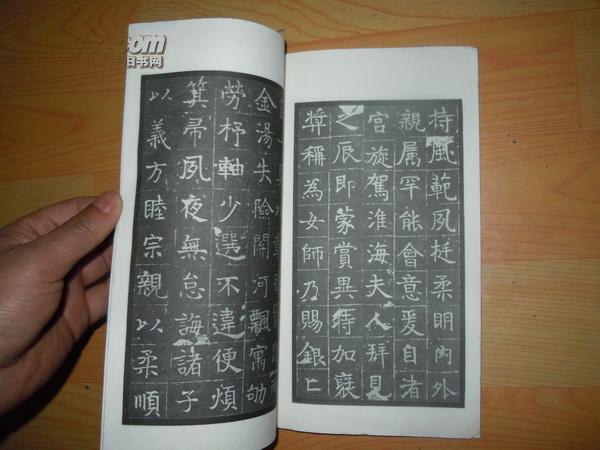 持風範夙挺柔明內外
親属罕能會意爰自渚
宮旋駕淮海夫人拜見
之辰即蒙賞異特加裦
奬稱為女師乃賜銀
金湯失險關河飄寓劬
勞杼軸少選不違便煩
箕帚夙夜無怠誨諸子
以義方睦宗親以柔順
.com
旧书网